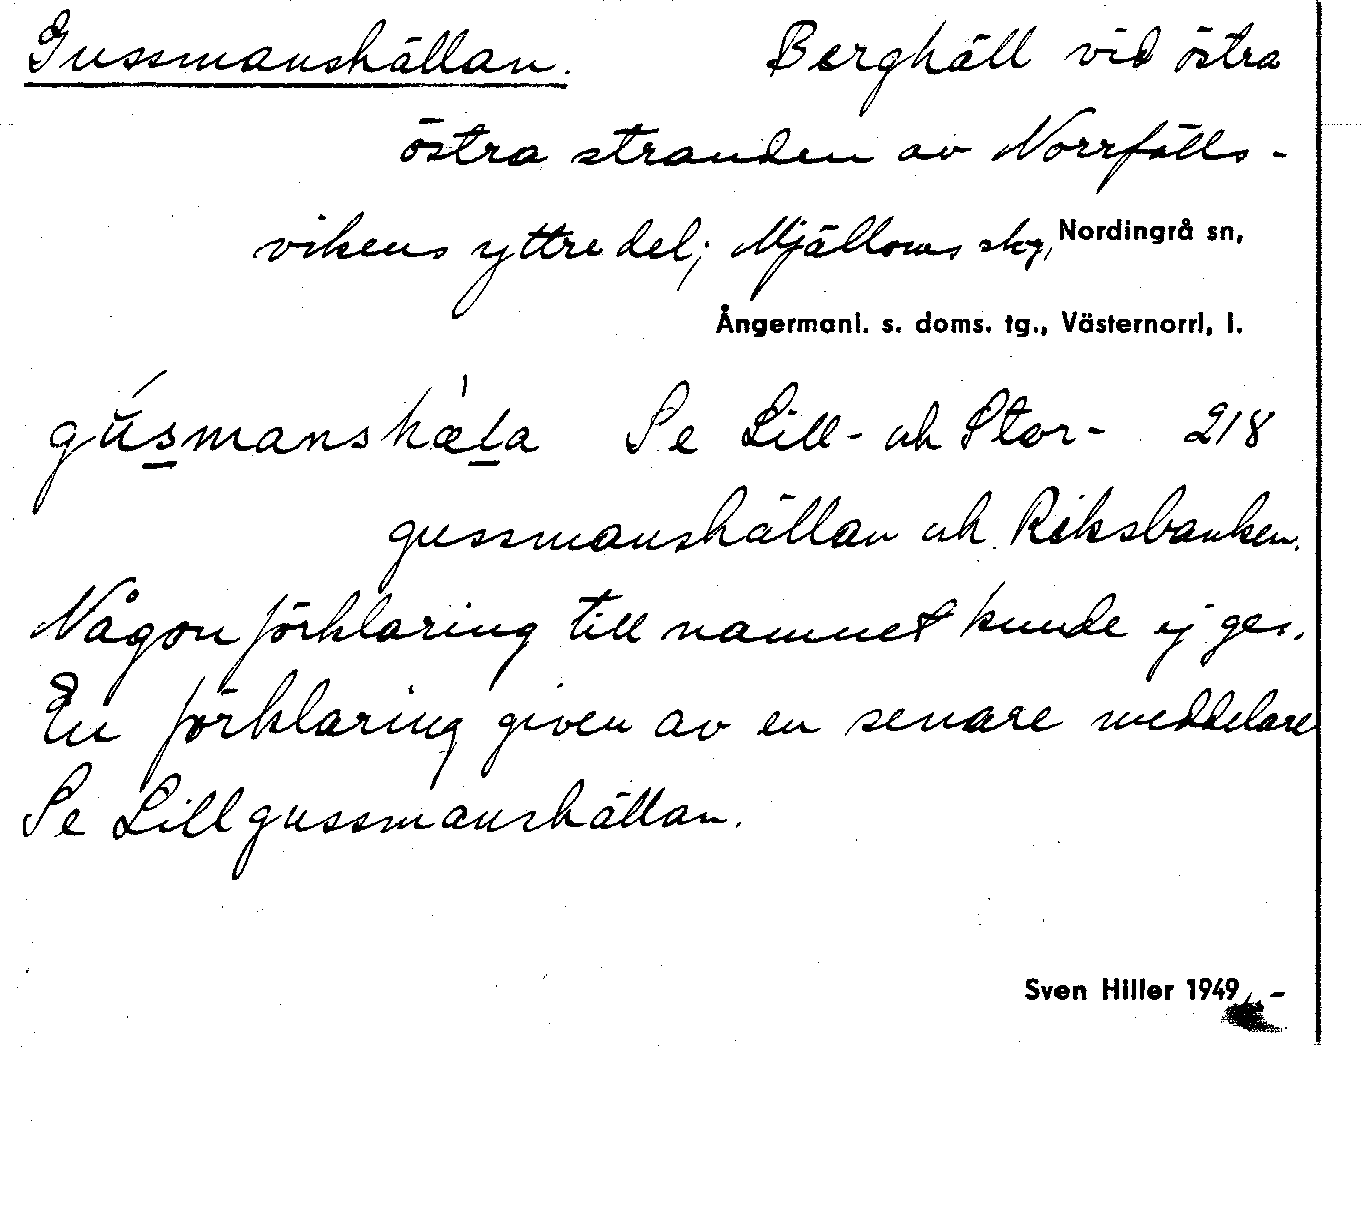 Gussmanshällan. Berghäll vid östra
östra stranden av Norrfälls-
vikens yttre del; Mjälloms skg, Nordingrå sn,
Ångermanl. s. doms. tg., Västernorrl. l.
gúsmanshæ̀la Se Lill- och Stor- 218
gussmanshällan och Riksbanken.
Någon förklaring till namnet kunde ej ges.
En förklaring given av en senare meddelare
Se Lillgussmanshällan.
Sven Hiller 1949 -